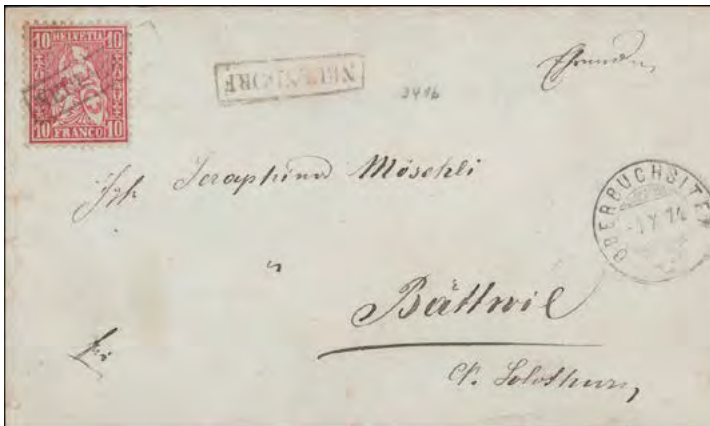 10 HELVETIA 10
10 FRANCO 10
NEUENDORF
3496
Jgfr Seraphina Möschli
"
Bättwil
Ct. Solothurn,
OBERBUCHSITEN
-1 X 74